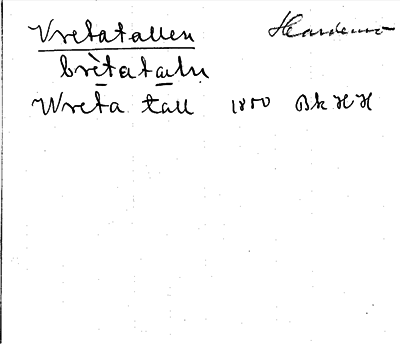 Vretatallen Hardemo
brètatal̥n
Wreta tall 1850 Bk HH